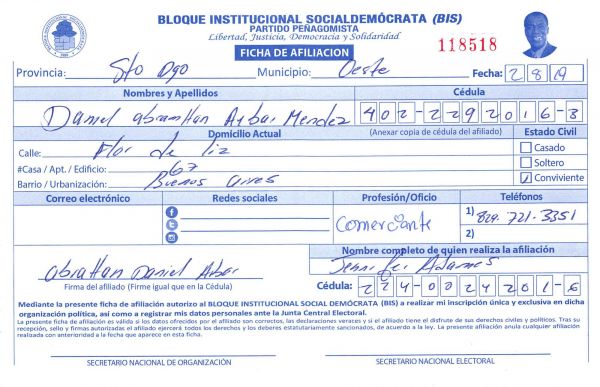 BLOQUE INSTITUCIONAL SOCIALDEMÓCRATA (BIS)
PARTIDO PEÑAGOMISTA
Libertad, Justicia, Democracia y Solidaridad
FICHA DE AFILIACION
118518
Provincia: Sto Dgo Municipio: Oeste Fecha: 2 8 19
Nombres y Apellidos Cédula
Daniel abrattan Aybar Mendez 402-2292016-3
Domicilio Actual (Anexar copia de cédula del afiliado) Estado Civil
Calle: Flor de liz Casado
#Casa / Apt. / Edificio: 67 Soltero
Barrio / Urbanización: Buenos Aires Conviviente
Correo electrónico Redes sociales Profesión/Oficio Teléfonos
Comerciante 1) 829.721.3351
2)
Nombre completo de quien realiza la afiliación
abrattan Daniel Aibar Jennifer Adames
Firma del afiliado (Firme igual que en la Cédula) Cédula: 224-0024201-6
Mediante la presente ficha de afiliación autorizo al BLOQUE INSTITUCIONAL SOCIAL DEMÓCRATA (BIS) a realizar mi inscripción única y exclusiva en dicha
organización política, así como a registrar mis datos personales ante la Junta Central Electoral.
La presente ficha de afiliación es válida si los datos ofrecidos por el afiliado son correctos, las declaraciones veraces y si el afiliado tiene el disfrute de sus derechos civiles y políticos. Tras su
recepción, sello y firmas autorizadas el afiliado ejercerá todos los derechos y los deberes estatutariamente sancionados, de acuerdo a la ley. La presente afiliación anula cualquier afiliación
realizada con anterioridad a la fecha que aparece en esta ficha.
SECRETARIO NACIONAL DE ORGANIZACIÓN SECRETARIO NACIONAL ELECTORAL